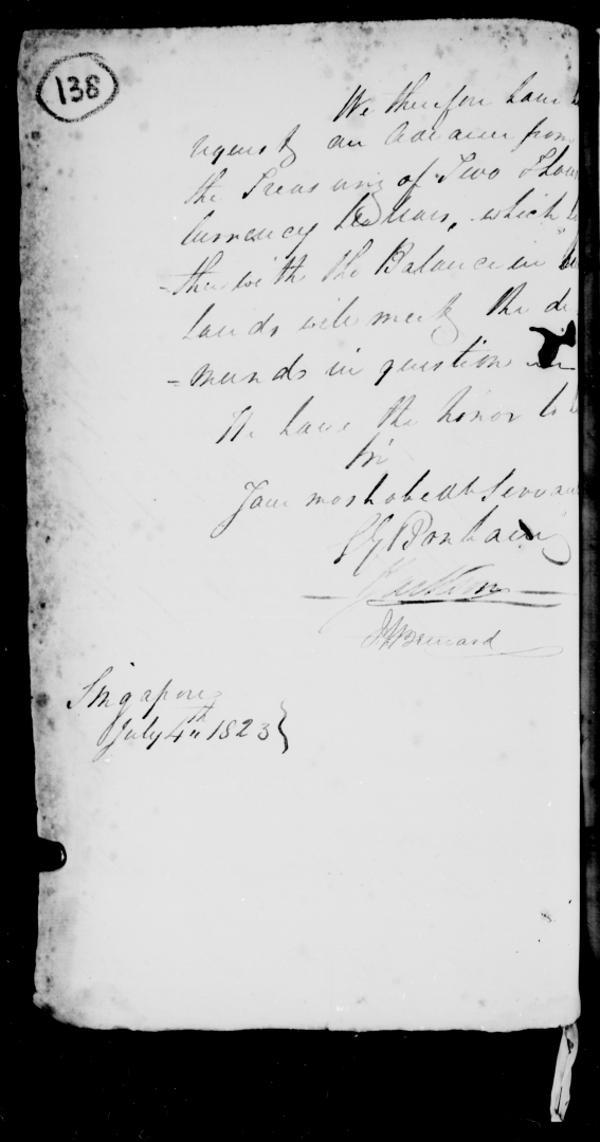 138
We therefore have
request an advance from
the Treasury of Two Thou
Currency Dollars, which
-ther with the Balance in
hands will meet the de
-mands in question
We have the honor to
Sir
Your most obedt Servan
S G Bonham
F J Bernard
Singapore
July 4th 1823